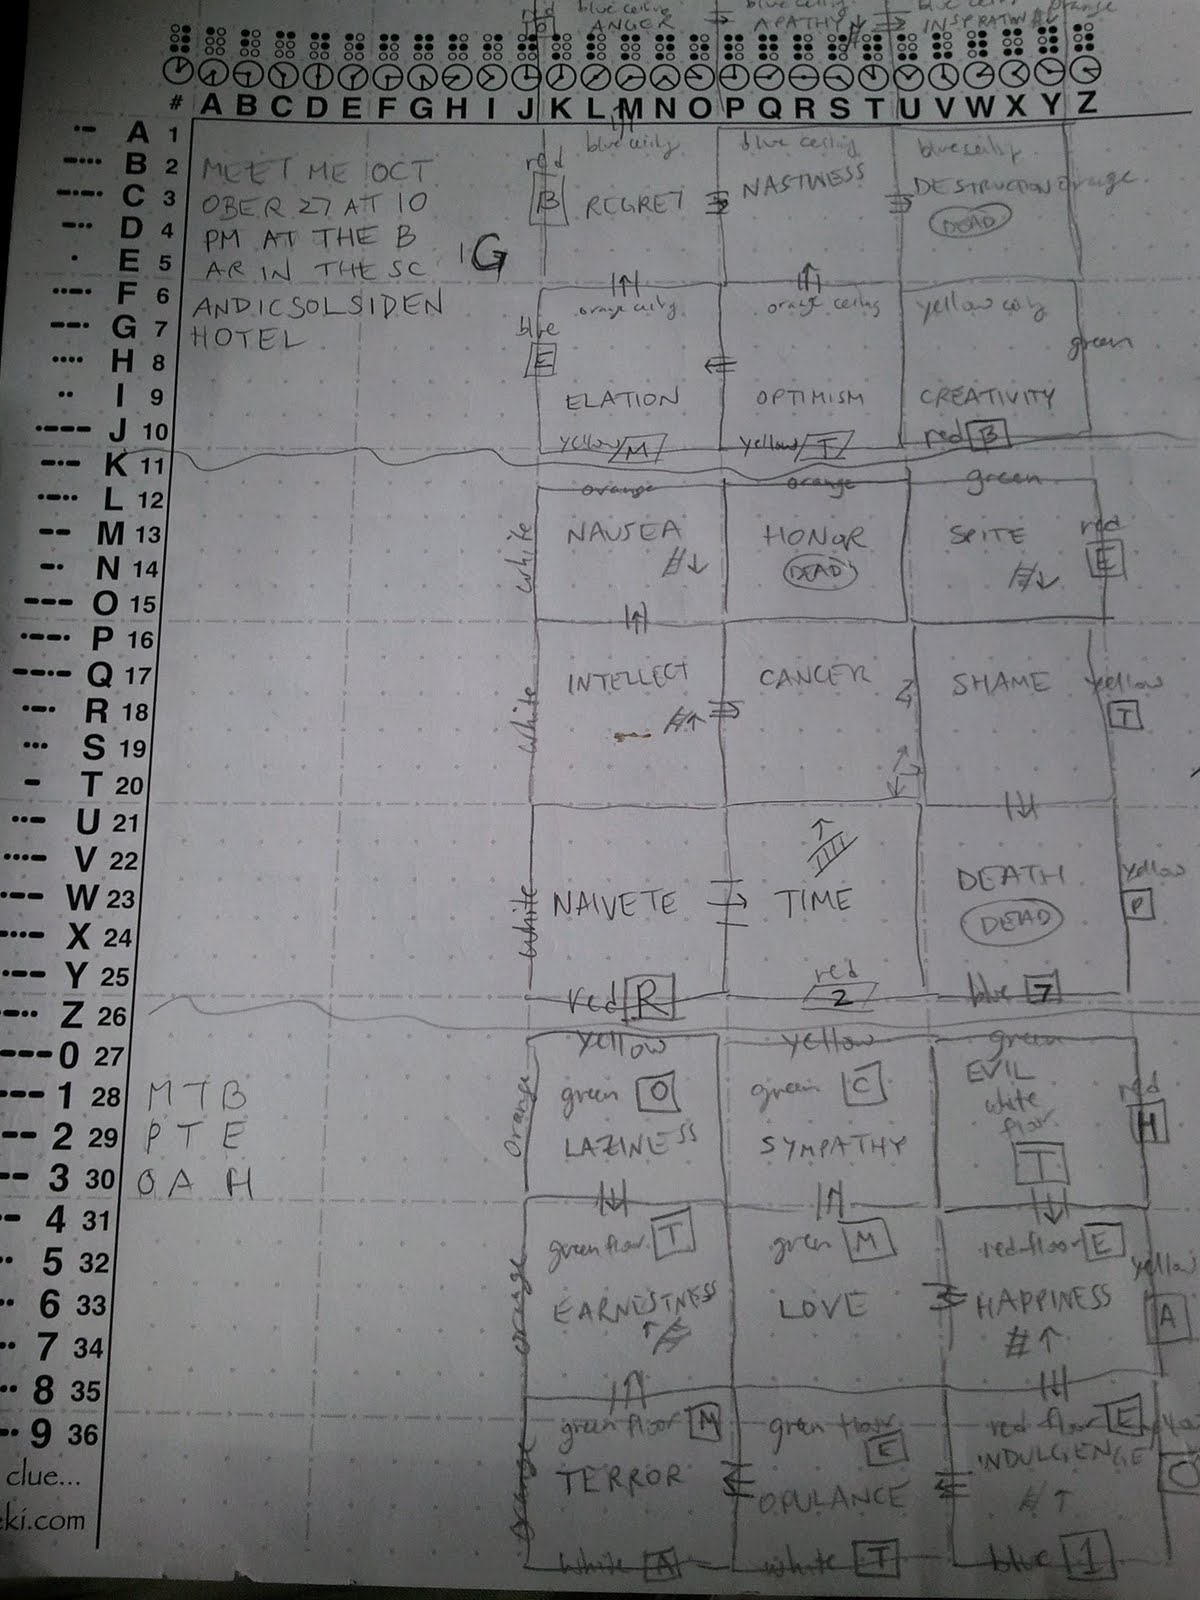 blue ceiling
blue ceiling
blue ceiling
orange
red
ANGER
APATHY
# A B C D E F G H I J K L M N O P Q R S T U V W X Y Z
A 1
blue ceiling
blue ceiling
blue ceiling
B 2
MEET ME OCT
red
NASTINESS
C 3
OBER 27 AT 10
B
REGRET
DESTRUCTION
orange
D 4
PM AT THE B
DEAD
E 5
AR IN THE SC
G
F 6
ANDICSOLSIDEN
orange ceiling
orange ceiling
yellow ceiling
G 7
HOTEL
blue
green
H 8
E
I 9
ELATION
OPTIMISM
CREATIVITY
J 10
yellow M
yellow T
red B
K 11
L 12
orange
orange
green
M 13
white
NAUSEA
HONOR
SPITE
red
N 14
DEAD
E
O 15
P 16
Q 17
INTELLECT
CANCER
SHAME
yellow
R 18
white
T
S 19
T 20
U 21
V 22
DEATH
yellow
W 23
white
NAIVETE
TIME
P
X 24
DEAD
Y 25
red R
red
2
blue 7
Z 26
0 27
yellow
yellow
green
1 28
M T B
orange
green O
green C
EVIL
white
floor
red
2 29
P T E
LAZINESS
SYMPATHY
H
3 30
O A H
T
4 31
5 32
green floor T
green M
red floor E
yellow
6 33
orange
EARNESTNESS
LOVE
HAPPINESS
A
7 34
8 35
9 36
green floor M
green floor
E
red floor E
clue...
orange
TERROR
OPULANCE
INDULGENGE
C
eki.com
white A
white T
blue 1